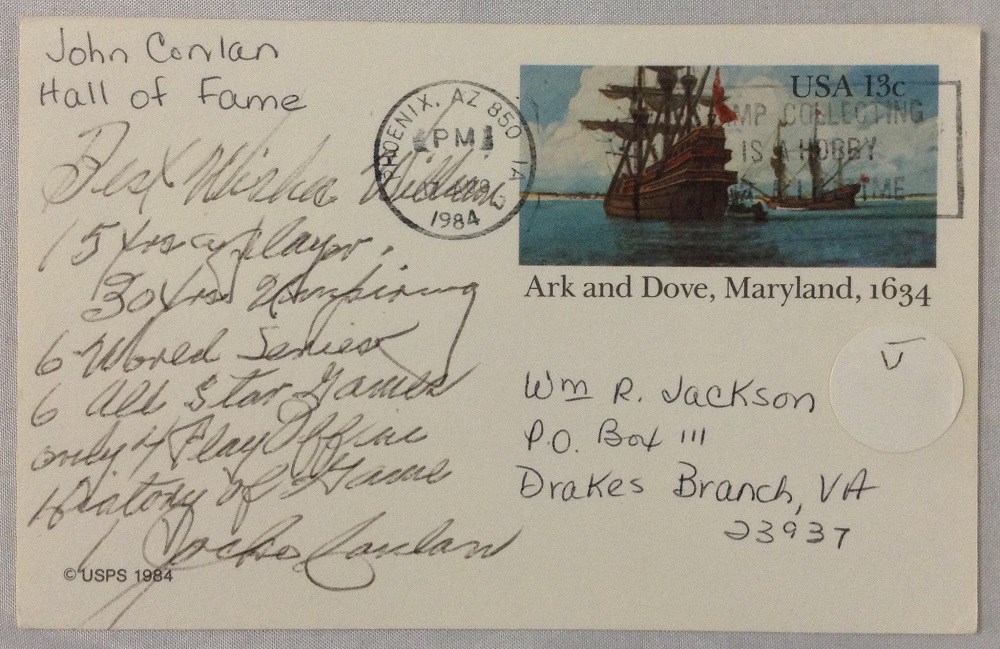 John Conlan
Hall of Fame
Best Wishes William
15 Yrs a player.
30 Yrs Umpiring
6 World Series
6 All Star Games
only 4 Play Off in
History of Game
Jocko Conlan
© USPS 1984
PHOENIX, AZ 850
PM
1984
USA 13c
MP COLLECTING
IS A HOBBY
TIME
Ark and Dove, Maryland, 1634
Wm R. Jackson
P.O. Box 111
Drakes Branch, VA
23937